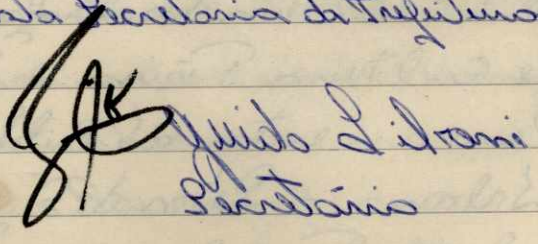 da Secretaria da Prefeitura
Guido
Secretário